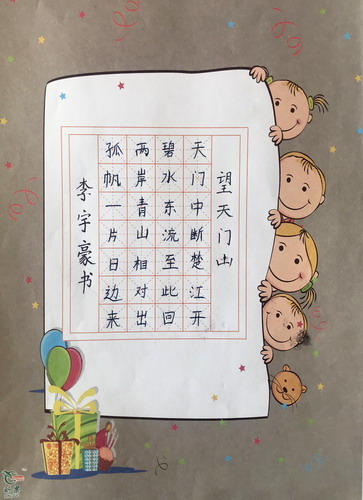 望天门山
天门中断楚江开
碧水东流至此回
两岸青山相对出
孤帆一片日边来
李宇豪书